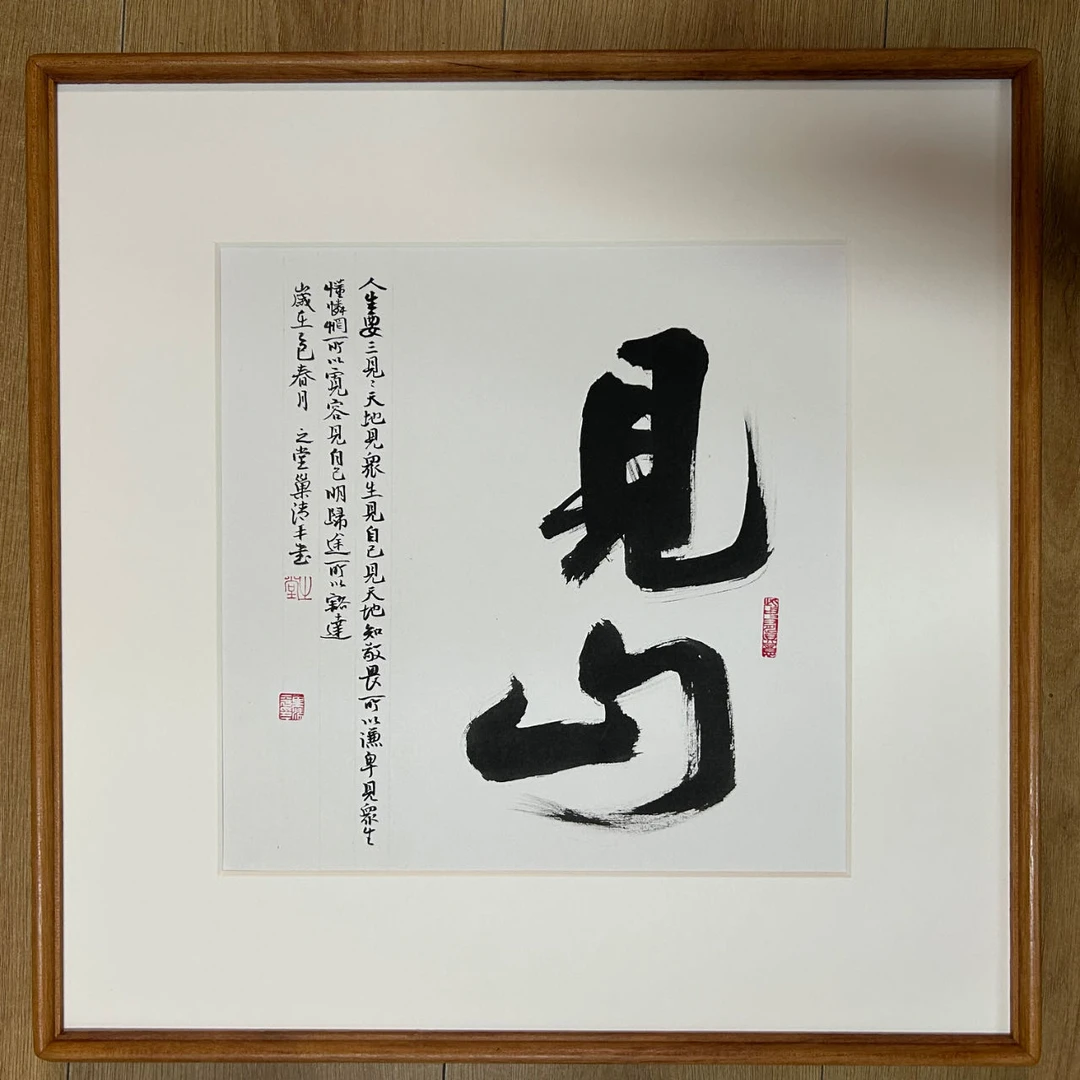 見山
人生要三見〻天地見衆生見自己見天地知敬畏可以謙卑見衆生
懂憐憫可以寬容見自己明歸途可以豁達
歲在乙巳春月 之堂巢清平書
之堂